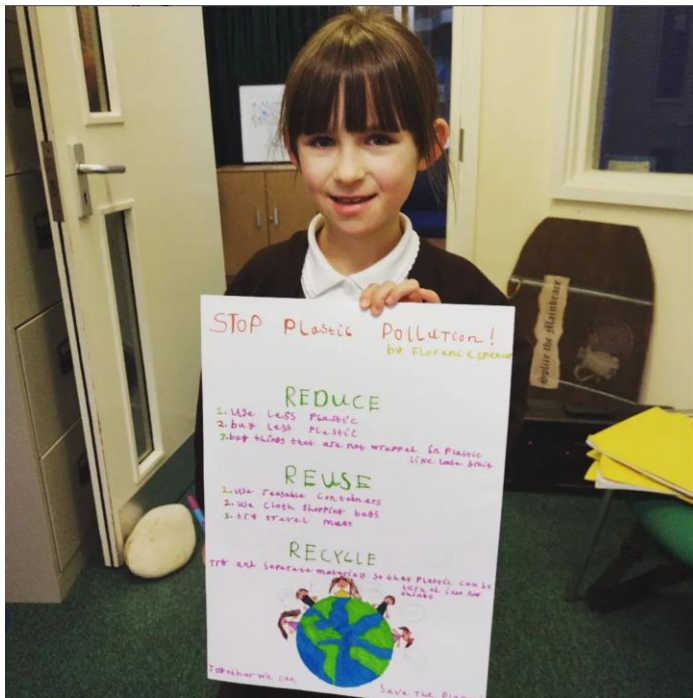 STOP Plastic Pollution!
by Florence
REDUCE
1. Use Less Plastic
2. buy Less Plastic
3. buy things that are not wrapped in Plastic
Like loose fruit
REUSE
1. Use reusable containers
2. Use cloth shopping bags
3. try travel mugs
RECYCLE
Try and separate materials so that Plastic can be
turned into new
things
Together we can
Save The
Splice the Mainbrace